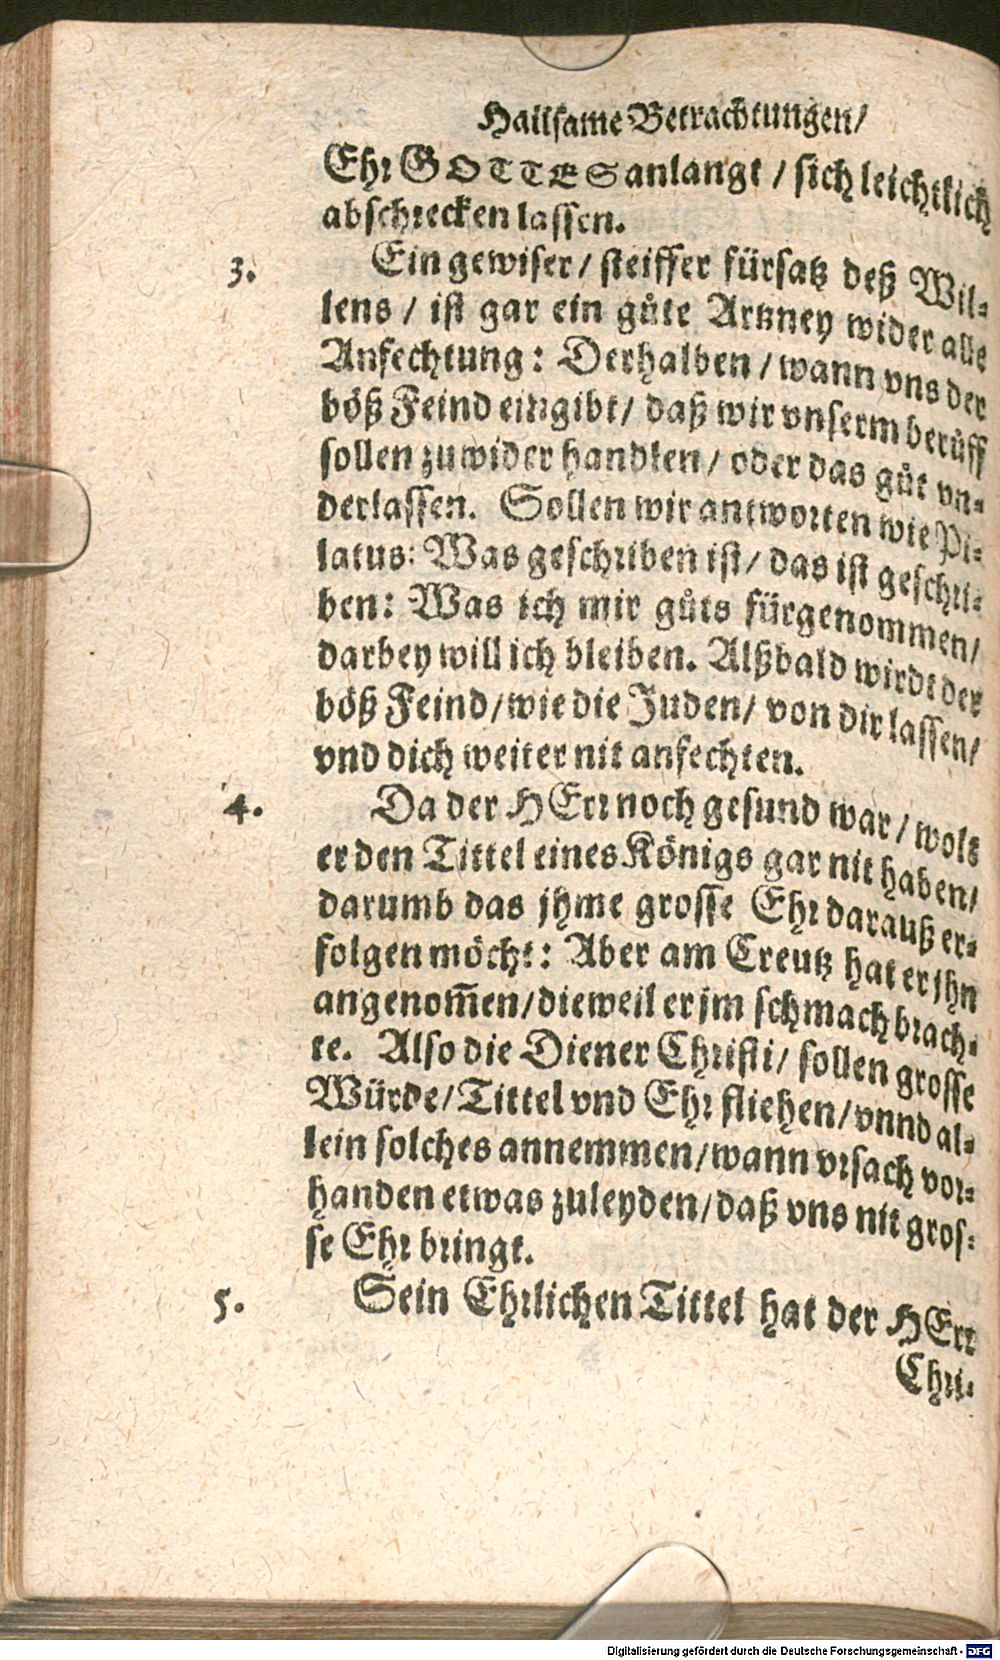 Hailsame Betrachtungen/
Ehr GOTTES anlangt / sich leichtlich
abschrecken lassen.
3. Ein gewiser / steiffer fürsatz deß Wil-
lens / ist gar ein gůte Artzney wider alle
Anfechtung: Derhalben / wann vns der
böß Feind eingibt / daß wir vnserm berůff
sollen zuwider handlen / oder das gůt vn-
derlassen. Sollen wir antworten wie Pi-
latus: Was geschriben ist / das ist geschri-
ben: Was ich mir gůts fürgenommen/
darbey will ich bleiben. Alßbald wirdt der
böß Feind / wie die Juden / von dir lassen/
vnd dich weiter nit anfechten.
4. Da der HErr noch gesund war / wolt
er den Tittel eines Königs gar nit haben/
darumb das jhme grosse Ehr darauß er-
folgen möcht: Aber am Creutz hat er jhn
angenom̃en / dieweil er jm schmach brach-
te. Also die Diener Christi / sollen grosse
Würde / Tittel vnd Ehr fliehen / vnnd al-
lein solches annemmen / wann vrsach vor-
handen etwas zuleyden / daß vns nit gros-
se Ehr bringt.
5. Sein Ehrlichen Tittel hat der HErr
Chri-
Digitalisierung gefördert durch die Deutsche Forschungsgemeinschaft - DFG